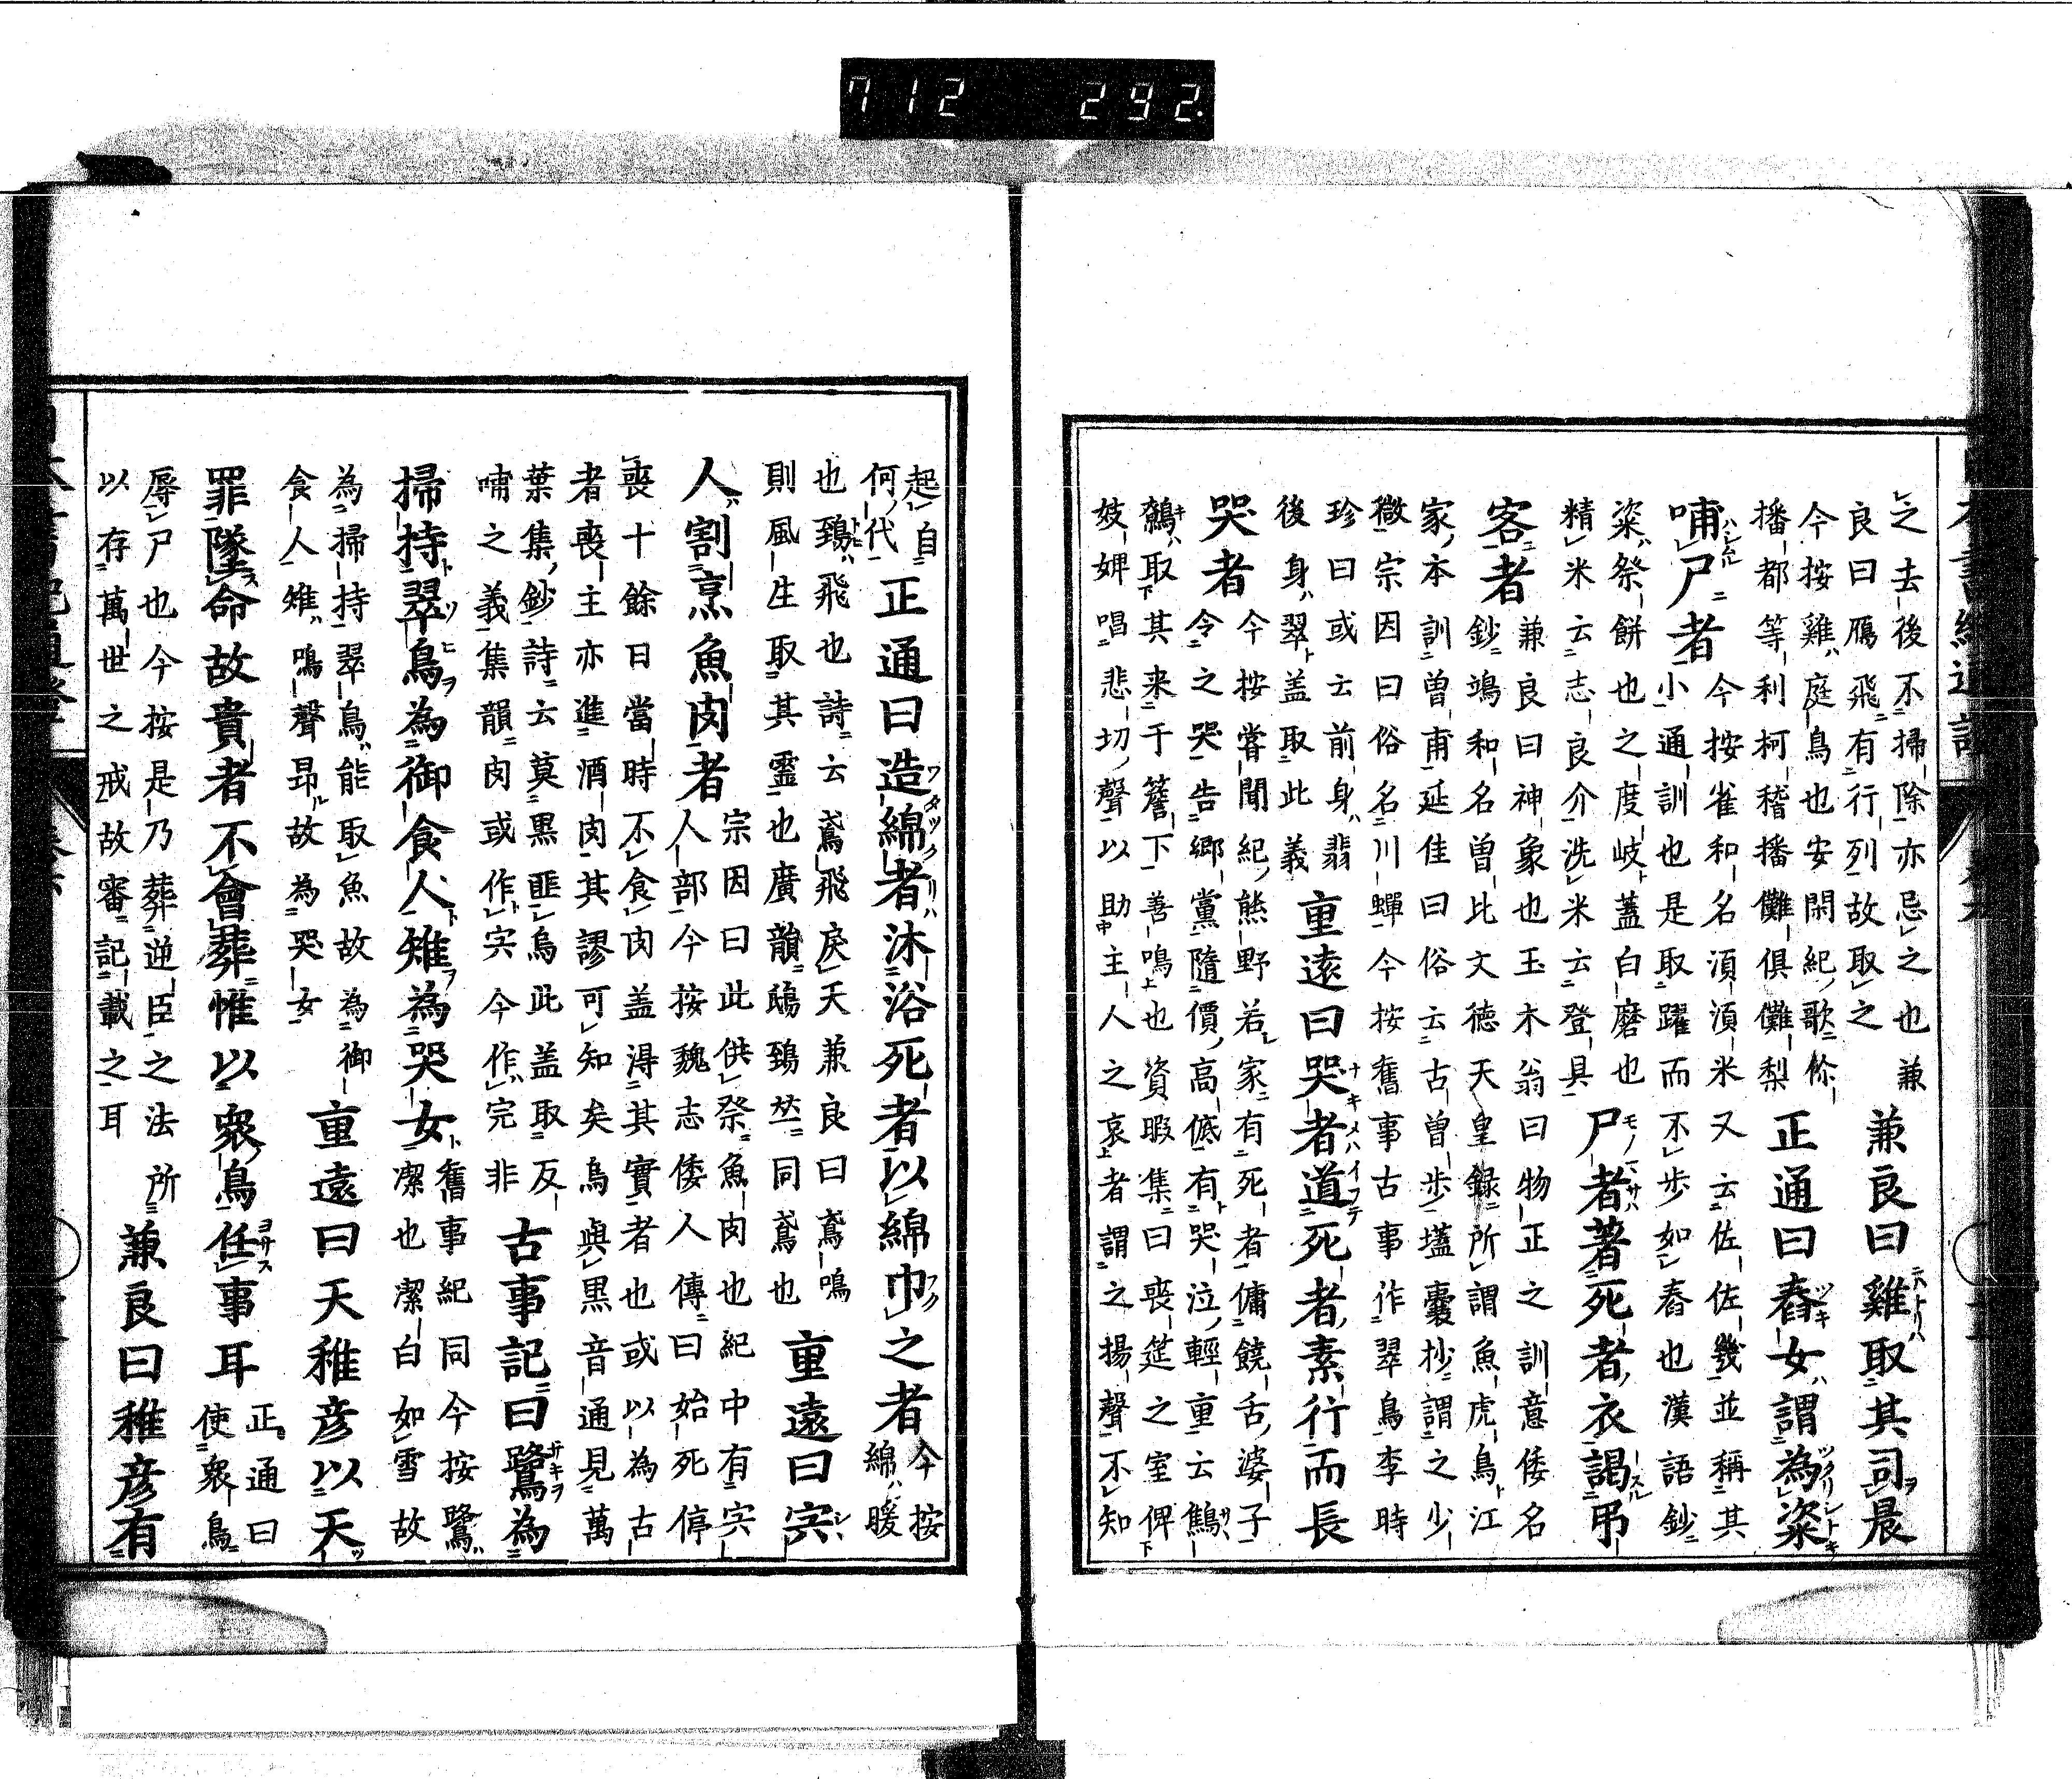 之去後不掃除亦忌之也兼
良曰鴈飛有行列故取之
兼良曰雞取其司晨
今按雞庭鳥也安閑紀歌伱
播都等利柯稽播儺倶儺梨
正通曰舂女謂為粢
哺尸者
今按雀和名湏湏米又云佐佐幾並稱其
小通訓也是取躍而不歩如舂也漢語鈔
粢祭餅也之度岐蓋白磨也
精米云志良介洗米云登具
尸者著死者衣謁吊
客者
兼良曰神象也玉木翁曰物正之訓意倭名
鈔鴗和名曽比文徳天皇録所謂魚虎鳥江
家本訓曽甫延佳曰俗云古曽歩壒嚢抄謂之少
微宗因曰俗名川蟬今按奮事古事作翠鳥李時
珍曰或云前身翡
後身翠盖取此義
重遠曰哭者道死者素行而長
哭者
今按嘗聞紀熊野若家有死者傭饒舌婆子
令之哭告郷黨隨價高低有哭泣輕重云鷦
鷯取其来于簷下善鳴也資暇集曰喪筵之室俾
妓婢唱悲切聲以助主人之哀者謂之揚聲不知
起自
何代
正通曰造綿者沐浴死者以綿巾之者
今按
綿暖
也鵄飛也詩云鳶飛戻天兼良曰鳶鳴
則風生取其靈也廣韻鴟鵄竝同鳶也
重遠曰宍
人割烹魚肉者
宗因曰此供祭魚肉也紀中有宍
人部今按魏志倭人傳曰始死停
喪十餘日當時不食肉盖淂其實者也或以為古
者喪主亦進酒肉其謬可知矣烏與黒音通見萬
葉集鈔詩云莫黒匪烏此盖取反
哺之義集韻肉或作宍今作完非
古事記曰鷺為
掃持翠鳥為御食人雉為哭女
舊事紀同今按鷺
潔也潔白如雪故
為掃持翠鳥能取魚故為御
食人雉鳴聲昂故為哭女
重遠曰天稚彦以天
罪墜命故貴者不會葬惟以衆鳥任事耳
正通曰
使衆鳥
辱尸也今按是乃葬逆臣之法所
以存萬世之戒故審記載之耳
兼良曰稚彦有